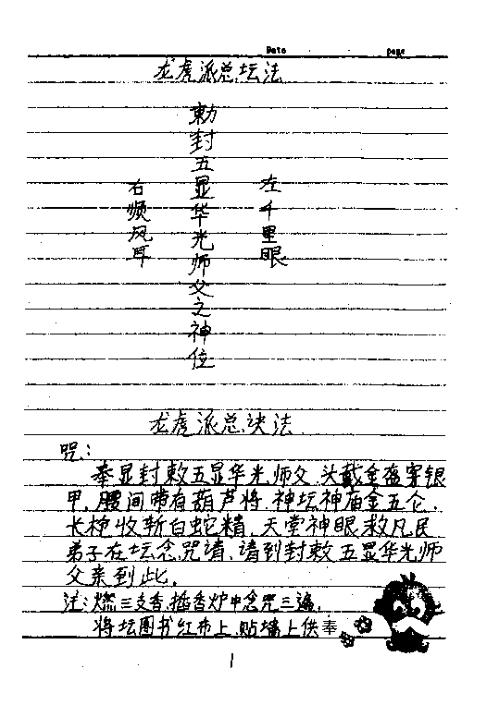 Date page
龙虎派总坛法
勅封五显华光师父之神位
左千里眼
右顺风耳
龙虎派总决法
咒:
奉显封敕五显华光师父.头戴金盔穿银
甲,腰间带有葫芦将.神坛神庙金五仑.
长枪收斩白蛇精.天堂神眼救凡民
弟子在坛念咒请、请到封敕五显华光师
父亲到此.
注:燃三支香.插香炉中念咒三遍.
将坛图书红布上.贴墙上供奉
1